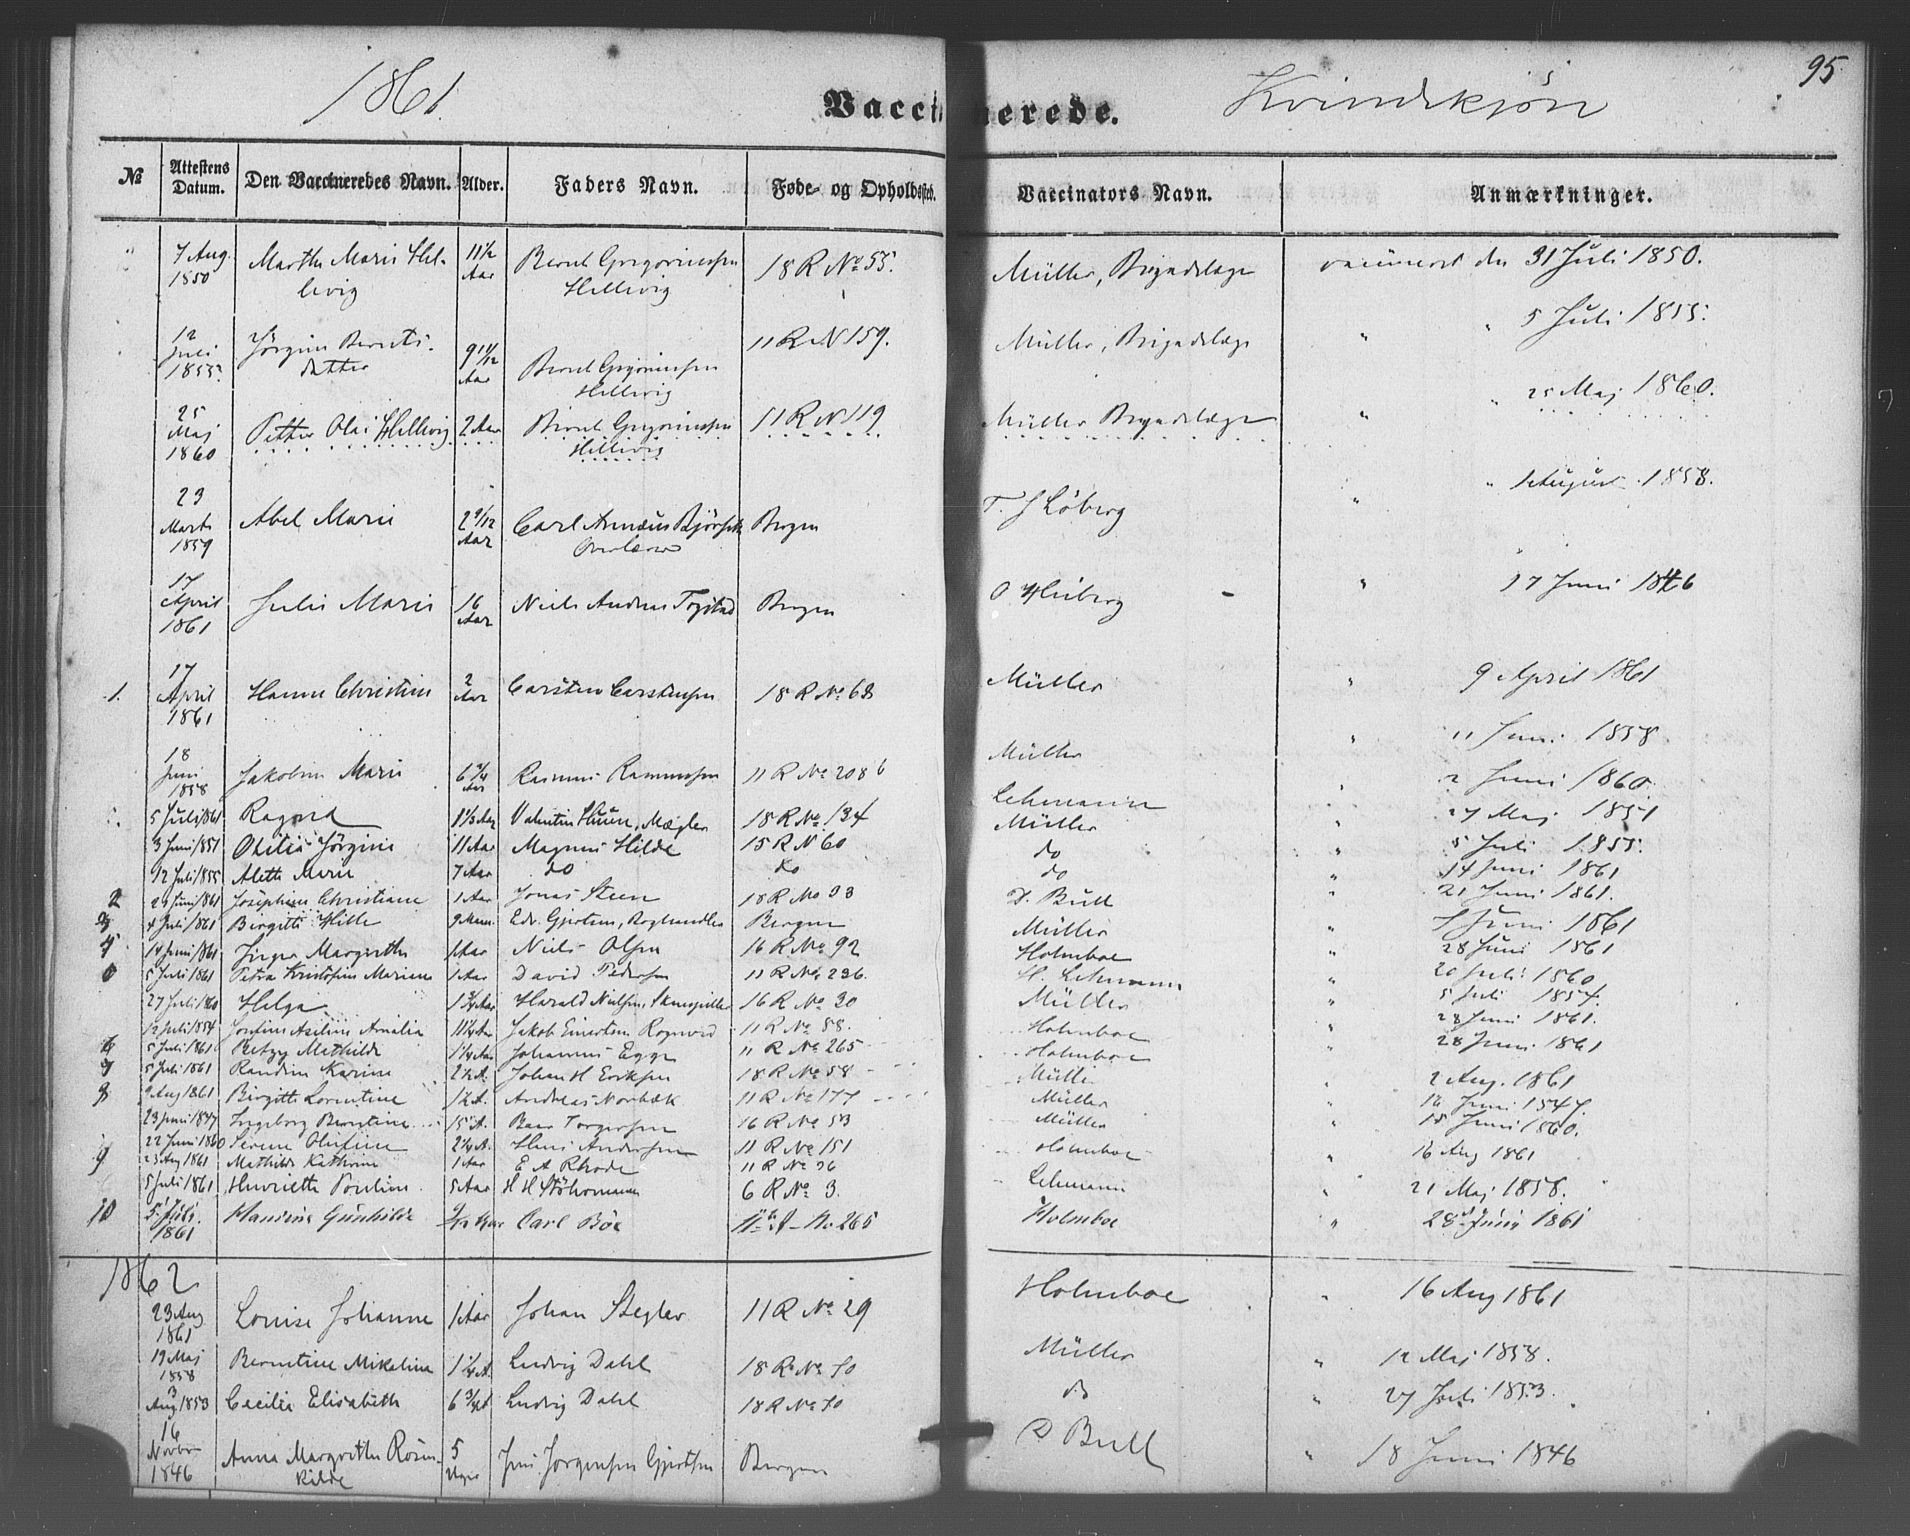 1861.
Vaccinerede.
Kvindekjön
95
№ Attestens Datum. Den Vaccineredes Navn. Alder. Faders Navn. Føde- og Opholdssted. Vaccinators Navn. Anmærkninger.
7 Aug. 1850 Marthe Marie Hellevig 11 1/2 Aar Bernt Gregoriussen Hellevig 18 R No 55. Müller, Brigadelæge vaccineret den 31 Juli 1850.
12 Juli 1855 Jörgine Berntsdatter 9 11/12 Aar Bernt Gregoriussen Hellevig 11 R N 159. Müller, Brigadelæge " " 5 Juli 1855.
25 Maj 1860 Petter Olai Hellevig 2 Aar Bernt Gregoriussen Hellevig 11 R N 119 Müller Brigadelæge " " 25 Maj 1860.
23 Marts 1859 Abel Marie 2 9/12 Aar Carl Bergen T. J Löberg " " August 1858.
17 April 1861 Julie Marie 16 Aar Niels Andreas Bergen O Heiberg " " 17 Juni 1846
1. 17 April 1861 Hanne Christine 2 Aar Carsten Carstensen 18 R No 68 Müller " 9 April 1861
18 Juni 1858 Jakobine Marie 6 3/4 Aar Rasmus Rasmussen 11 R No 208 b Müller " 11 Juni 1858
5 Juli 1861 Ragna 1 1/3 Aar Valentin Mægler 18 R No 134 Lehmann " 2 Juni 1860
3 Juni 1851 Otilie Jörgine 11 Aar Magnus Hilde 15 R N 60 Müller " 27 Maj 1851
12 Juli 1855 Alette Marie 7 Aar do do do " 5 Juli 1855.
2 29 Juni 1861 Josephine Christiane 1 Aar Jonas Steen 18 R No 93 do " 14 Juni 1861
3 4 Juli 1861 Birgitte Hille 9 Maan. Edv. Gjertsen, Boghandler Bergen D. Bull " 21 Juni 1861.
4 14 Juni 1861 Inger Margrethe 1 Aar Niels Olsen 16 R No 92 Müller " 7 Juni 1861
5 5 Juli 1861 Petra Kristofine Mariane 1 Aar David Pedersen 11 R No 236 Holmboe " 28 Juni 1861
27 Juli 1860 Helga 1 3/4 Aar Harald Nielsen, Skuespiller 16 R No 30 H. Lehmann " 20 Juli 1860
12 Juli 1854 Josefine Amalie 11 1/4 Aar Jakob Einertsen 11 R No 58. Müller " 5 Juli 1854.
6 5 Juli 1861 Betzy Mathilde 1 1/4 Aar Johannes Egge 11 R No 265 Holmboe " 28 Juni 1861.
7 5 Juli 1861 Randine Karine 2 1/2 A. Johan H Eriksen 18 R No 58 Holmboe " 28 Juni 1861
8 9 Aug 1861 Birgitte Lorentine 1 1/2 A. Andreas Norbæk 11 R No 177 Müller " 2 Aug. 1861
23 Juni 1847 Ingeborg Berntine 15 A. Torgersen 16 R No 53 Müller 16 Juni 1847.
22 Juni 1860 Serine Olufine 2 1/4 A. Hans Andersen 11 R No 151 Müller " 15 Juni 1860.
9 23 Aug 1861 Mathilde Kathrine 1 Aar E A Rhode 11 R No 36 Holmboe " 16 Aug 1861
5 Juli 1861 Henriette Pouline 5 Aar H H Stöhrmann 6 R No 3. Lehmann " 21 Maj 1858.
10 5 Juli 1861 Hansine Gunhilde Carl Böe 11 R No 265 Holmboe " 28 Juni 1861
1862
23 Aug 1861 Louise Johanne 1 Aar Johan Stegler 11 R No 29 Holmboe " 16 Aug 1861
19 Maj 1858 Berntine Mikaline 1 1/4 A. Ludvig Dahl 18 R No 70 Müller " 12 Maj 1858.
3 Aug 1853 Cecilie Elisabeth 6 3/4 A Ludvig Dahl 18 R No 70 do " 27 Juli 1853.
16 Novbr 1846 Anna Margrethe Rosenkilde 5 Uger Jens Jorgensen Gjertsen Bergen D Bull " 18 Juni 1846